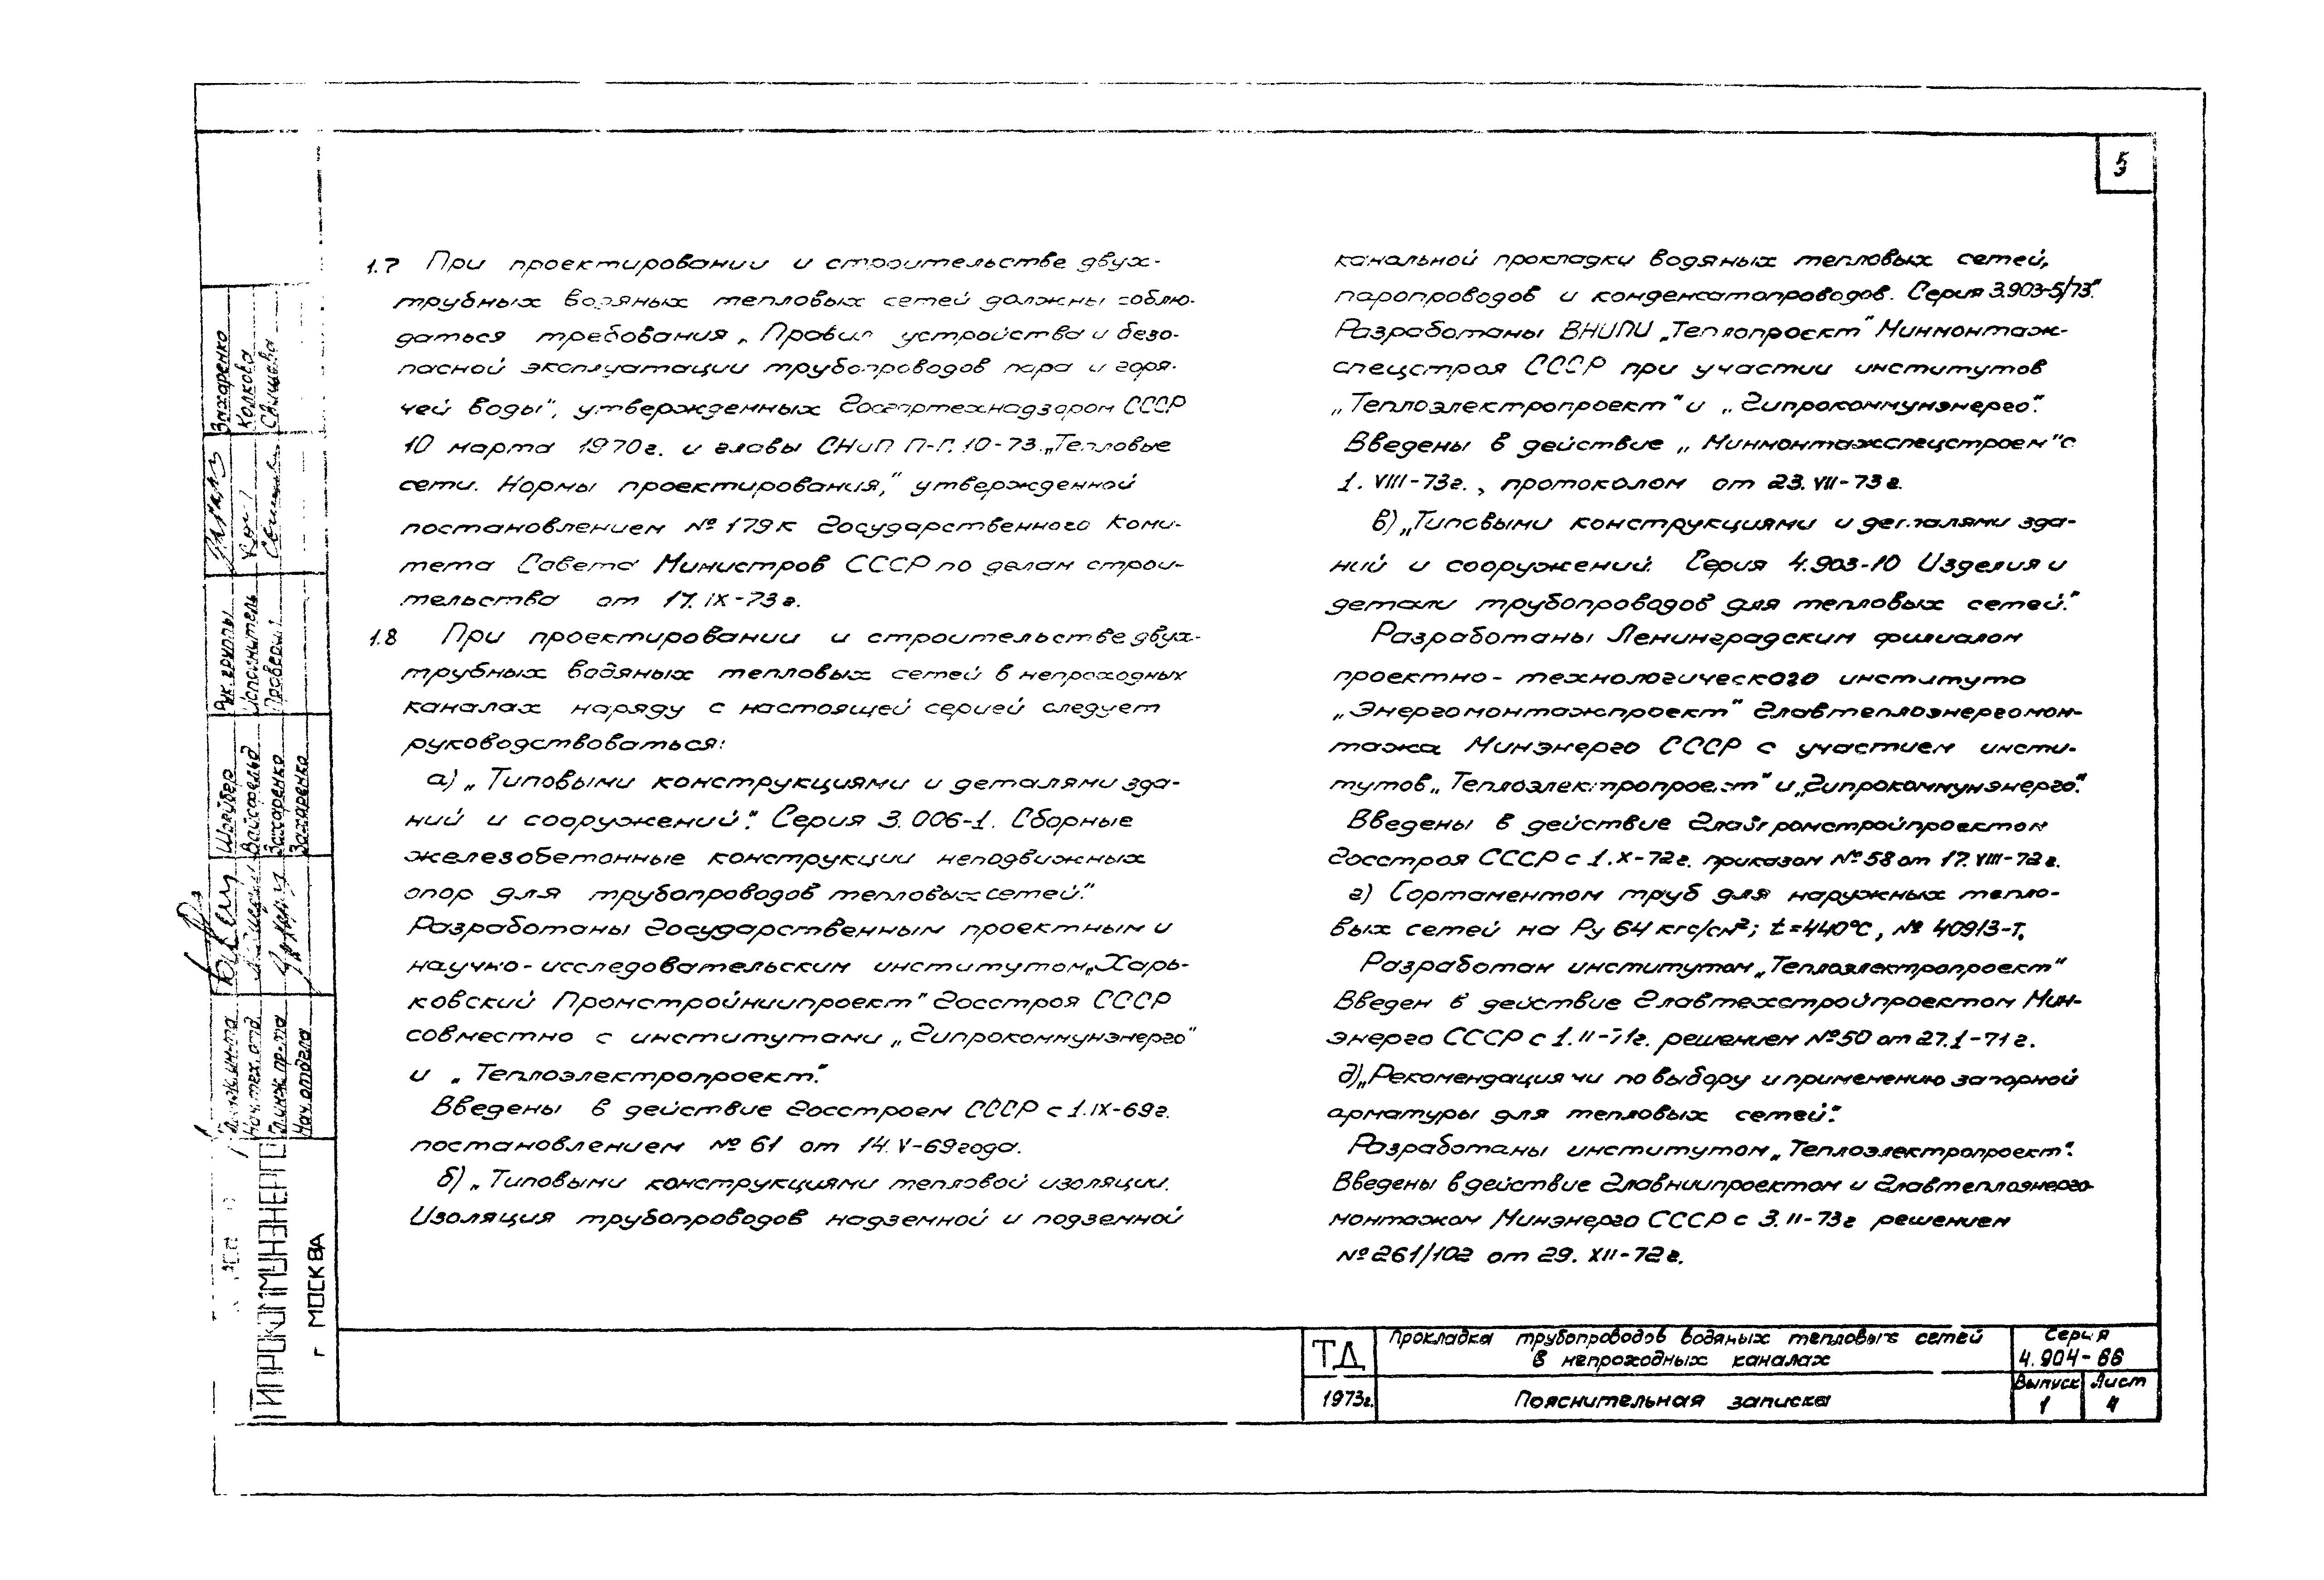 5
1.7 При проектировании и строительстве двух-
трубных водяных тепловых сетей должны соблю-
даться требования „Правил устройства и безо-
пасной эксплуатации трубопроводов пара и горя-
чей воды", утвержденных Госгортехнадзором СССР
10 марта 1970г. и главы СНиП П-Г.10-73 „Тепловые
сети. Нормы проектирования," утвержденной
постановлением №179к Государственного Коми-
тета Совета Министров СССР по делам строи-
тельства от 17.IX-73г.
1.8 При проектировании и строительстве двух-
трубных водяных тепловых сетей в непроходных
каналах наряду с настоящей серией следует
руководствоваться:
а) „Типовыми конструкциями и деталями зда-
ний и сооружений". Серия 3.006-1. Сборные
железобетонные конструкции неподвижных
опор для трубопроводов тепловых сетей".
Разработаны Государственным проектным и
научно-исследовательским институтом „Харь-
ковский Промстройниипроект" Госстроя СССР
совместно с институтами „Гипрокоммунэнерго"
и „Теплоэлектропроект".
Введены в действие Госстроем СССР с 1.IX-69г.
постановлением №61 от 14.V-69года.
б) „Типовыми конструкциями тепловой изоляции.
Изоляция трубопроводов надземной и подземной
канальной прокладки водяных тепловых сетей,
паропроводов и конденсатопроводов. Серия 3.903-5/73".
Разработаны ВНИПИ „Теплопроект" Минмонтаж-
спецстроя СССР при участии институтов
„Теплоэлектропроект" и „Гипрокоммунэнерго".
Введены в действие „Минмонтажспецстроем" с
1.VIII-73г., протоколом от 23.VII-73г.
в) „Типовыми конструкциями и деталями зда-
ний и сооружений. Серия 4.903-10 Изделия и
детали трубопроводов для тепловых сетей."
Разработаны Ленинградским филиалом
проектно-технологического института
„Энергомонтажпроект" Главтеплоэнергомон-
тажа Минэнерго СССР с участием инсти-
тутов „Теплоэлектропроект" и „Гипрокоммунэнерго".
Введены в действие Главпромстройпроектом
Госстроя СССР с 1.X-72г. приказом №58 от 17.VIII-72г.
г) Сортаментом труб для наружных тепло-
вых сетей на Ру 64 кгс/см²; t=440°C, № 409/3-Т.
Разработан институтом „Теплоэлектропроект"
Введен в действие Главтехстройпроектом Мин-
энерго СССР с 1.II-71г. решением №50 от 27.I-71г.
д) „Рекомендация чи по выбору и применению запорной
арматуры для тепловых сетей".
Разработаны институтом „Теплоэлектропроект".
Введены в действие Главниипроектом и Главтеплоэнерго-
монтажом Минэнерго СССР с 3.II-73г решением
№261/102 от 29.XII-72г.
ТД
1973г.
Прокладка трубопроводов водяных тепловых сетей
в непроходных каналах
Пояснительная записка
Серия
4.904-66
Выпуск Лист
1 4
Рук. группы Захаренко
Исполнитель Колкова
Проверил Свищева
Гл. инж. ин-та Швейбер
Нач. тех. отд. Вайсфельд
Гл. инж. пр-та Захаренко
Нач. отдела Захаренко
ГИПРОКОММУНЭНЕРГО
г МОСКВА